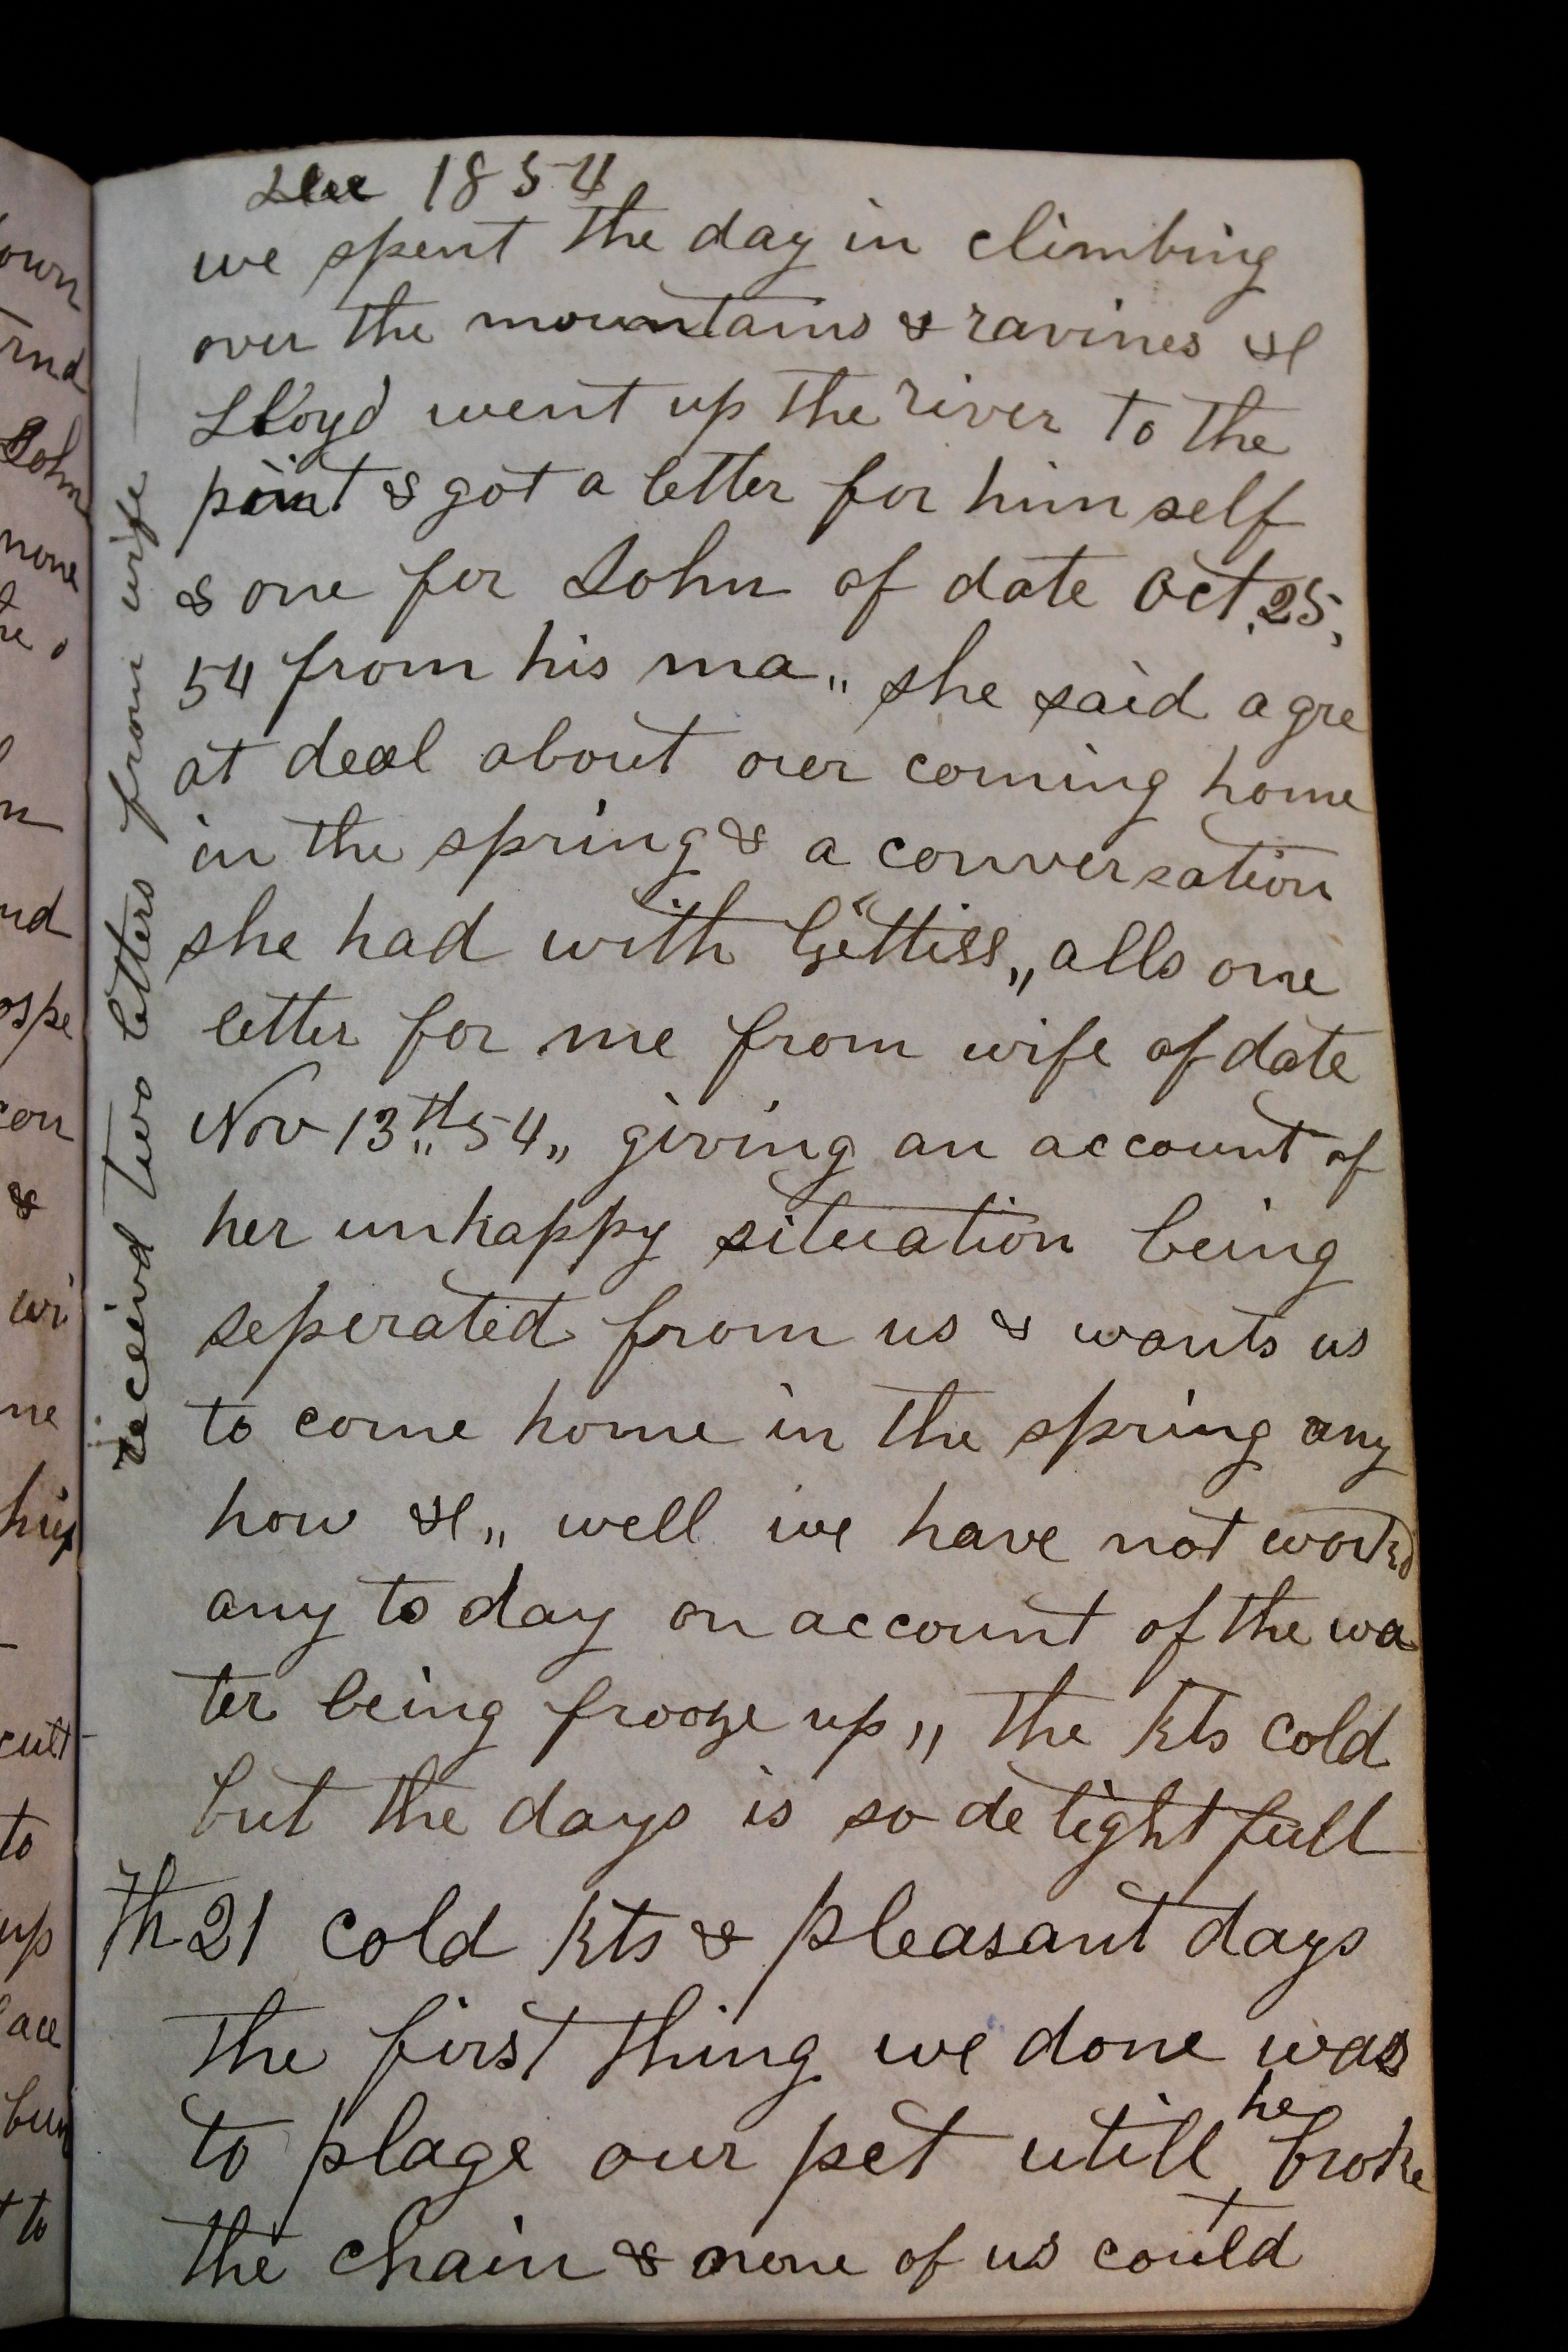 Dec 1854
we spent the day in climbing
over the mountains & ravines &c
Lloyd went up the river to the
point & got a letter for him self
& one for John of date Oct. 25,
54 from his ma,, she said a gre
at deal about our coming home
in the spring & a conversation
she had with Gettiss,, allso one
letter for me from wife of date
Nov 13,,th 54,, giving an account of
her unhappy situation being
seperated from us & wants us
to come home in the spring any
how &c,, well we have not workd
any to day on account of the wa
ter being frooze up,, the Nts cold
but the days is so delight full
Th 21 cold Nts & pleasant days
the first thing we done was
to plage our pet utill he broke
the chain & none of us could
receivd two letters from wife
own
rnd
John
none
he
n
nd
ospe
con
&
wi
me
hip
cult
to
up
ace
bun
t to